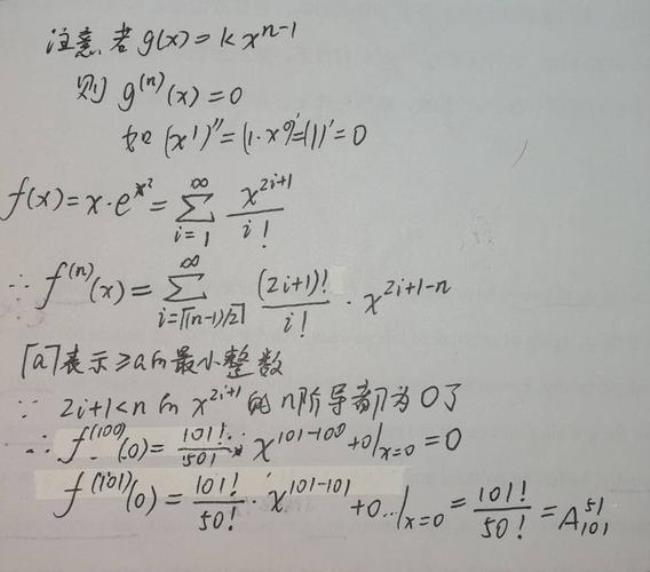 注意,若g(x)=kx^{n-1}
则 g^{(n)}(x)=0
如 (x^1)''=(1·x^0)'=(1)'=0
f(x)=x·e^{x^2}=∑_{i=1}^{∞} x^{2i+1}/i!
∴ f^{(n)}(x)=∑_{i=⌈(n-1)/2⌉}^{∞} (2i+1)!/i! · x^{2i+1-n}
⌈a⌉表示≥a的最小整数
∵ 2i+1<n的 x^{2i+1} 的n阶导都为0了
∴ f^{(100)}(0)=101!/50! · x^{101-100}+0|_{x=0}=0
f^{(101)}(0)=101!/50! · x^{101-101}+0..|_{x=0}=101!/50!=A_{101}^{51}